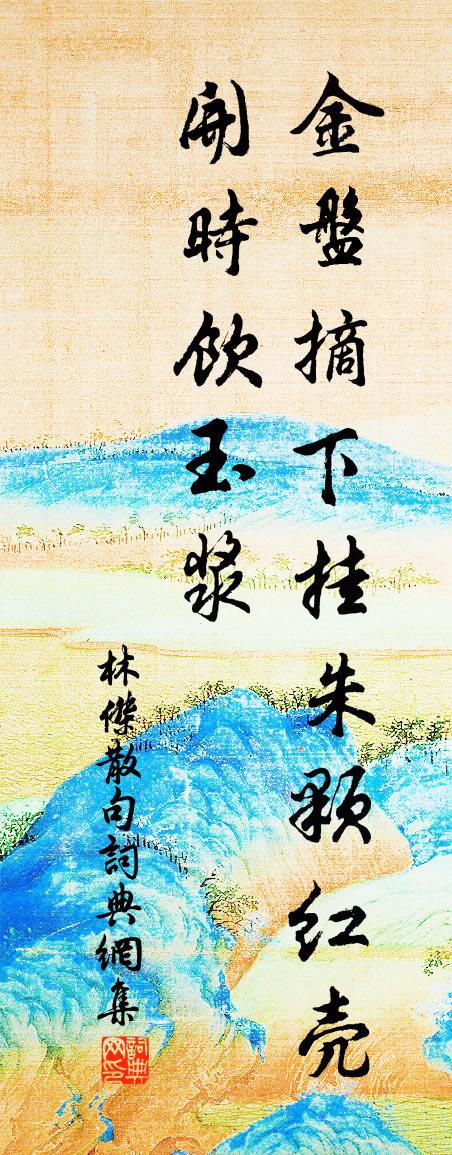 金盤摘下挂朱顆紅壳
開時飲玉漿
林傑散句詞典網集
詞典网印